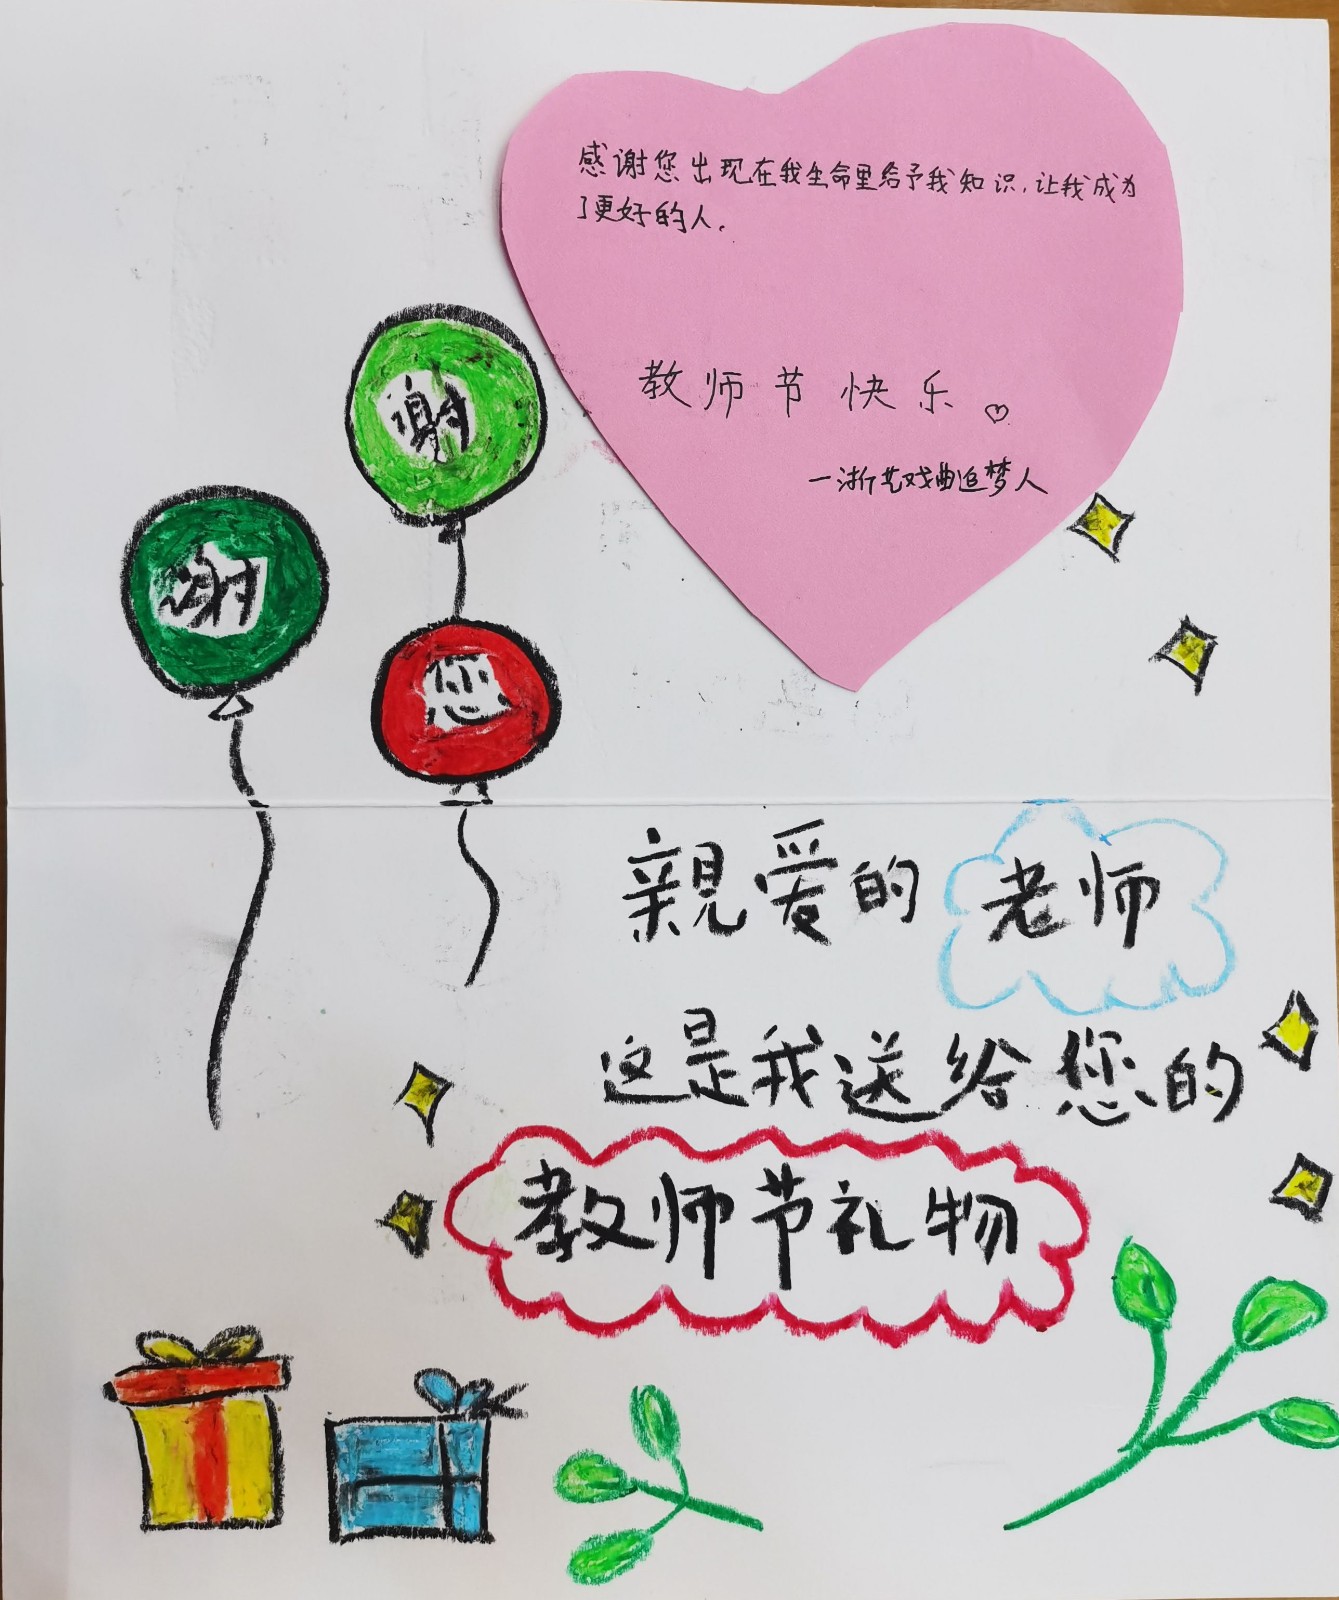 感谢您出现在我生命里给予我知识，让我成为
了更好的人。
教师节快乐
一浙艺戏曲追梦人
谢
谢
您
親爱的老师
这是我送给您的
教师节礼物